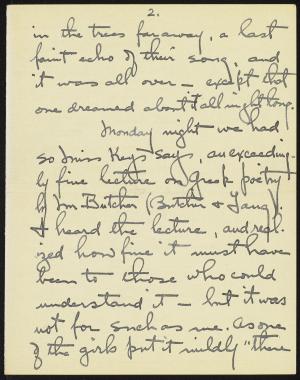 2.
in the trees far away, a last
faint echo of their song, and
it was all over - except that
one dreamed about it all night long.
Monday night we had
so Miss Keys says, an exceeding-
ly fine lecture on Greek poetry
by Mr Butcher (Butcher & Lang).
I heard the lecture, and real-
ized how fine it must have
been to those who could
understand it - but it was
not for such as me. As one
of the girls put it mildly "there